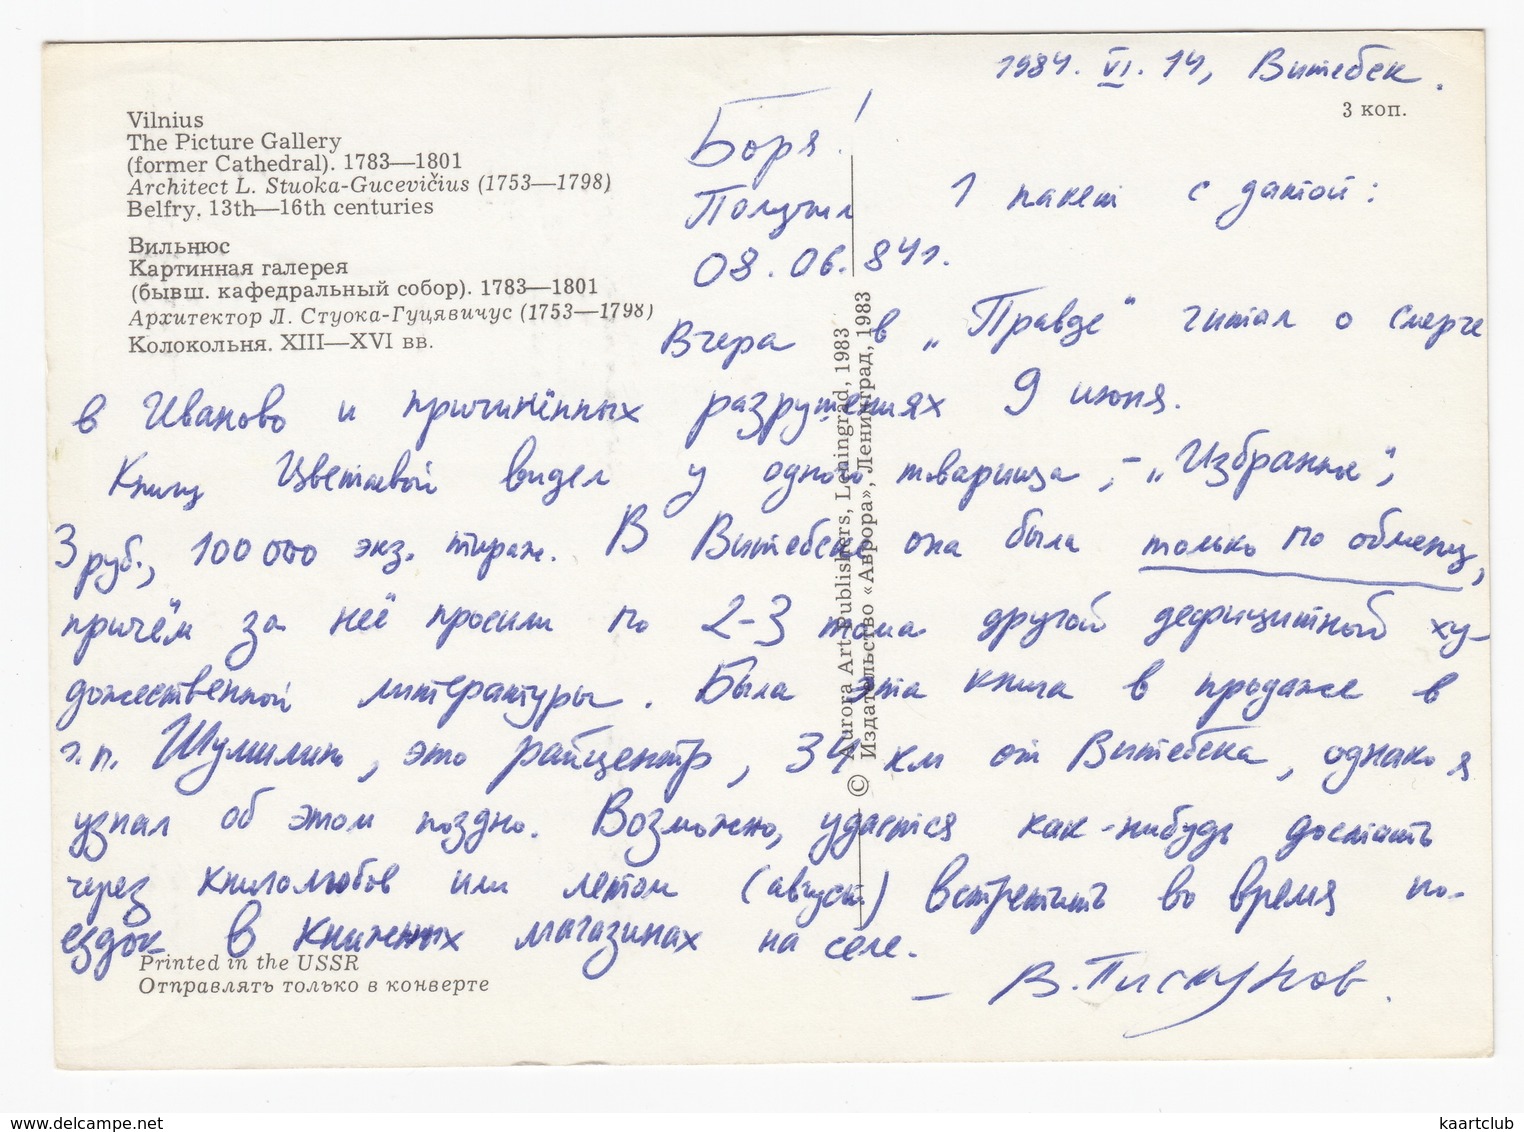 1984. VI. 14, Витебск.
3 коп.
Vilnius
The Picture Gallery
(former Cathedral). 1783—1801
Architect L. Stuoka-Gucevičius (1753—1798)
Belfry. 13th—16th centuries
Вильнюс
Картинная галерея
(бывш. кафедральный собор). 1783—1801
Архитектор Л. Стуока-Гуцявичус (1753—1798)
Колокольня. XIII—XVI вв.
Боря!
Получил 1 пакет с датой:
08.06.84г.
Вчера в „Правде" читал о смерче
в Иваново и причинённых разрушениях 9 июня.
Книгу Цветаевой видел у одного товарища, – „Избранные",
3 руб., 100 000 экз. тираж. В Витебске она была только по обмену,
причём за неё просили по 2-3 тома другой дефицитной ху-
дожественной литературы. Была эта книга в продаже в
г.п. Шумилино, это райцентр, 34 км от Витебска, однако я
узнал об этом поздно. Возможно, удастся как-нибудь достать
через книголюбов или летом (август) встретить во время по-
ездок в книжных магазинах на селе.
– В. Пискунов.
© Aurora Art Publishers, Leningrad, 1983
Издательство «Аврора», Ленинград, 1983
Printed in the USSR
Отправлять только в конверте
kaartclub